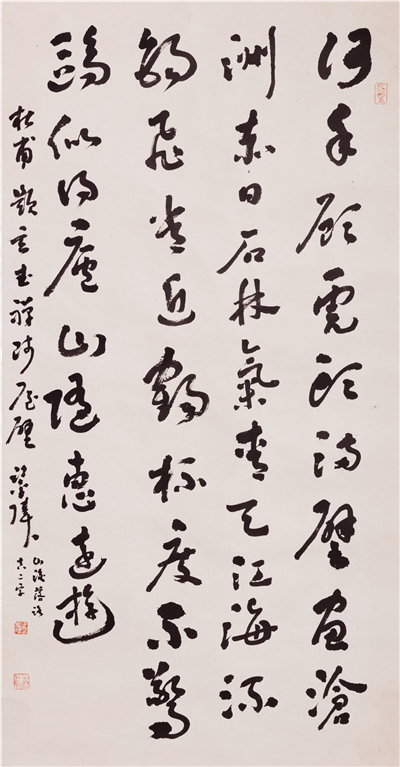 何年顧虎頭滿壁畫滄
洲赤日石林氣青天江海流
錫飛常近鶴杯度不驚
鷗似得廬山隨惠遠遊
杜甫題玄武禪師屋壁
山後落路
真二字